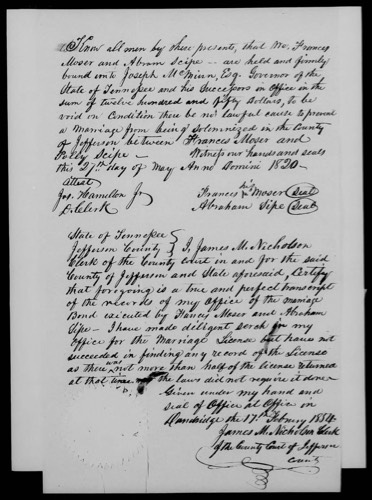 Know all men by these presents, that we, Frances
Moser and Abram Scipe - are held and firmly
bound unto Joseph McMinn, Esq. Governor of the
State of Tennessee and his Successors in Office in the
sum of twelve hundred and fifty dollars, to be
void on Condition there be no lawful cause to prevent
a Marriage from being solemnized in the County
of Jefferson between Frances Moser and
Polly Scipe - Witness our hands and seals
this 27th day of May Anno Domini 1820-
Attest
Jos. Hamilton Jr
D. Clerk
Frances his Moser (Seal)
Abraham Sipe (Seal)
State of Tennessee
Jefferson County } I, James M. Nicholson
Clerk of the County Court in and for the said
County of Jefferson and State aforesaid, Certify
that foregoing is a true and perfect transcript
of the records of my Office of the Marriage
Bond executed by Francis Moser and Abraham
Sipe - I have made diligent serch in my
Office for the Marriage License but have not
succeeded in finding any record of the License
as there was not more than half of the license returned
at that time the laws did not require it done
Given under my hand and
seal of Office at Office in
Dandridge the 17th Febuary 1854
James M. Nicholson Clerk
of the County Court of Jefferson
County